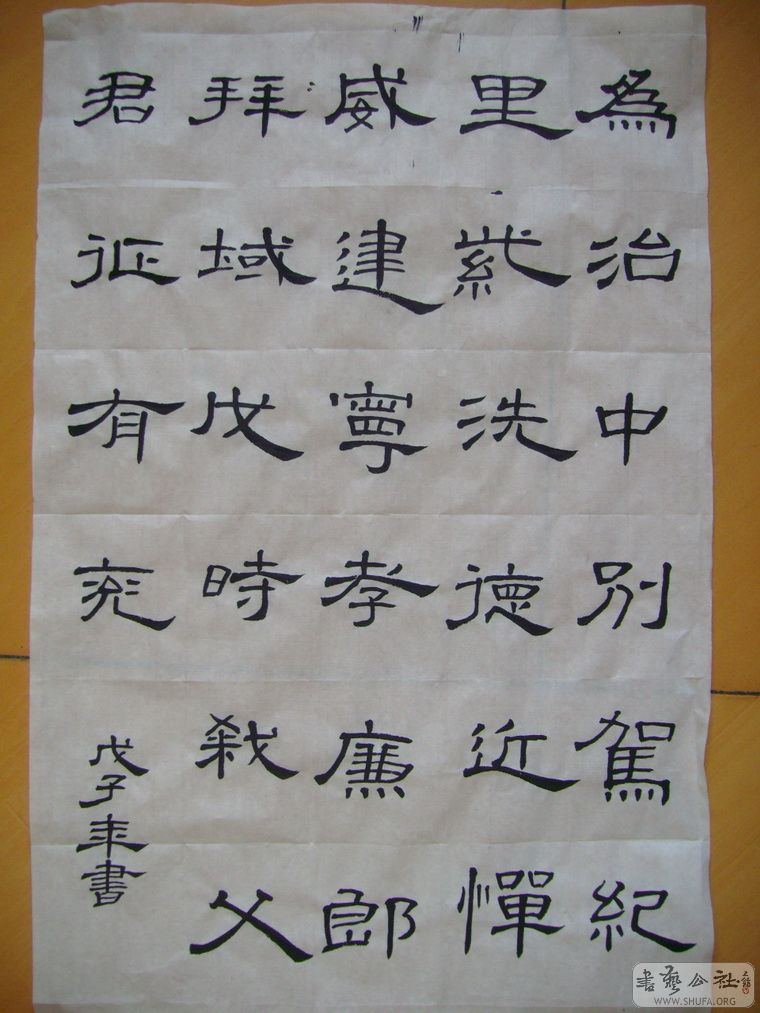 為治中別駕紀
里紫洗德近憚
威建寧孝廉郎
拜域戊時弒父
君征有兗
戊子年書
書藝公社
WWW.SHUFA.ORG